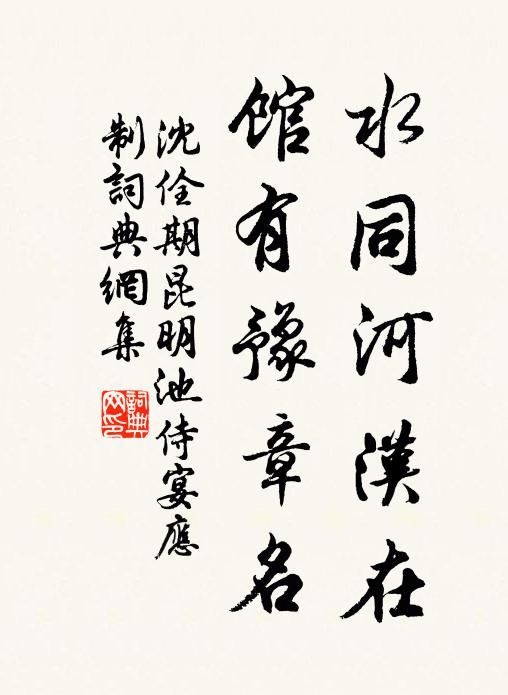 水同河漢在
館有豫章名
沈佺期昆明池侍宴應
制詞典網集
詞典
网印